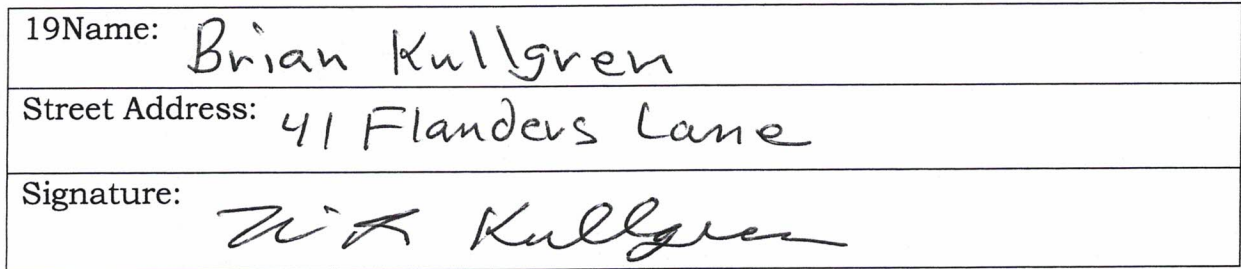 19Name: Brian Kullgren
Street Address: 41 Flanders Lane
Signature: Kullgren